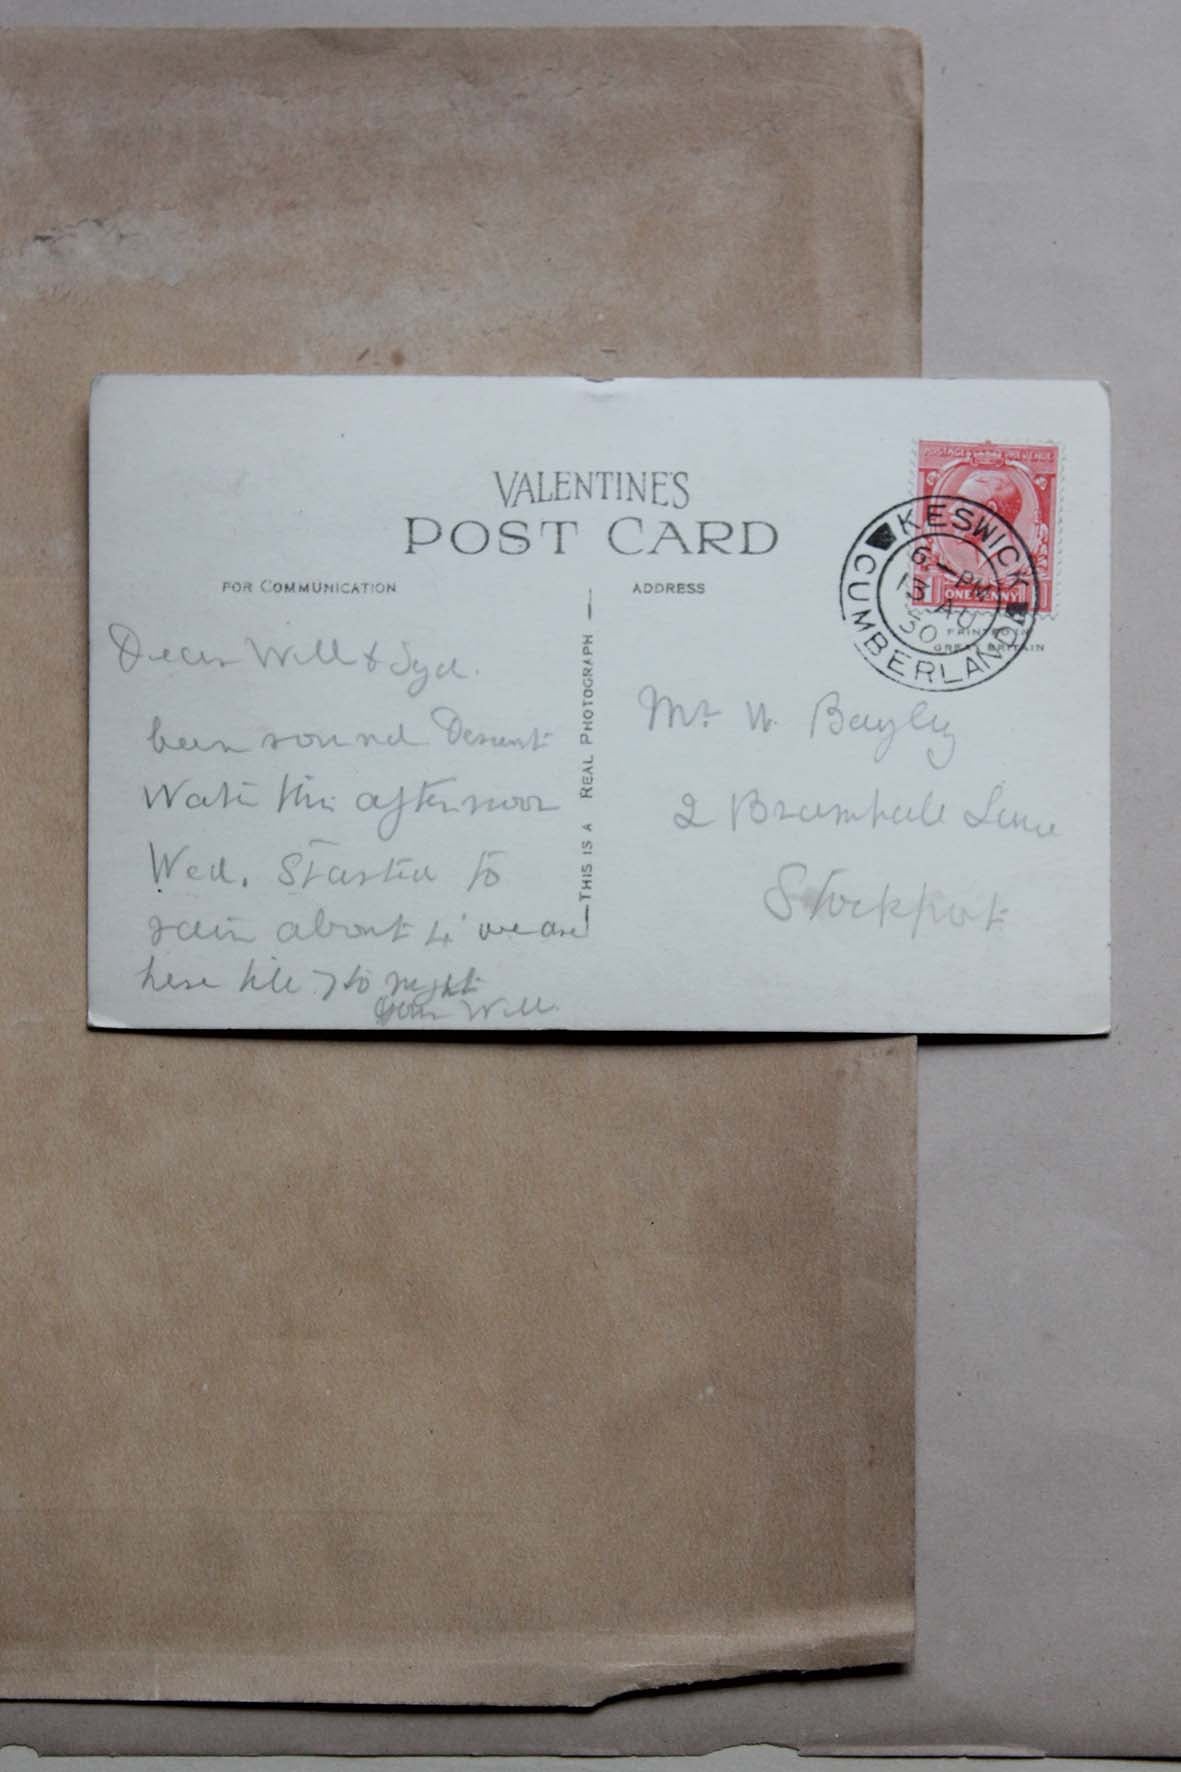 VALENTINE'S
POST CARD
FOR COMMUNICATION
ADDRESS
THIS IS A REAL PHOTOGRAPH
POSTAGE REVENUE
ONE PENNY
KESWICK
6 - PM
13 AU
30
CUMBERLAND
PRINTED IN
GREAT BRITAIN
Dear Will & Syd.
been round Derwent
Water this afternoon
Wed. Started to
rain about 4 we are
here till 7 to night
Will.
Mr W. Bayley
2 Bramhall Lane
Stockport